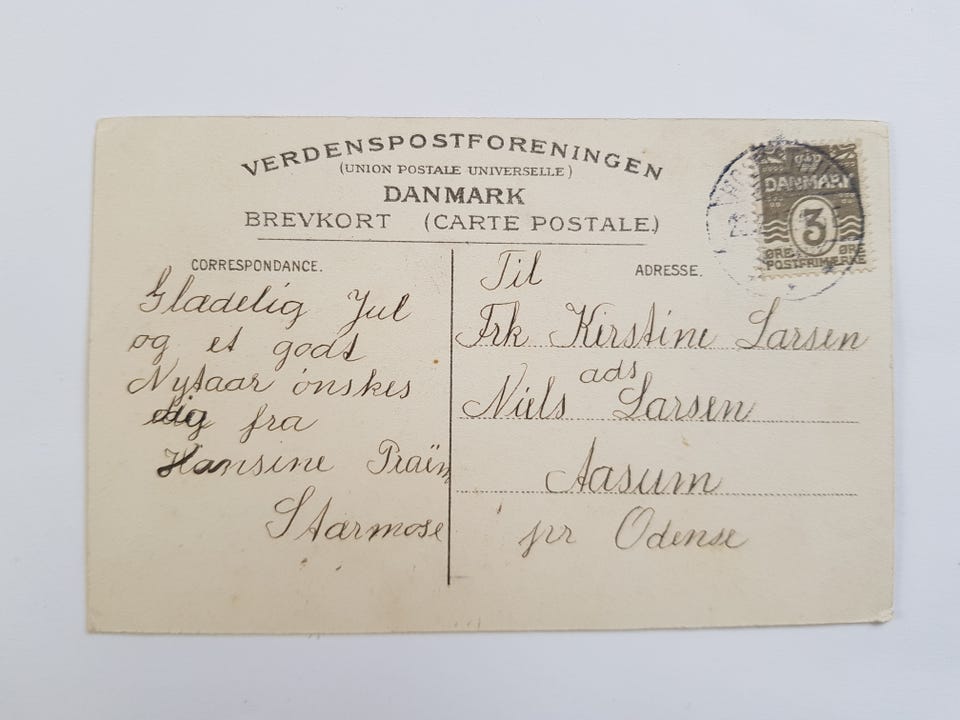 VERDENSPOSTFORENINGEN
(UNION POSTALE UNIVERSELLE)
DANMARK
BREVKORT (CARTE POSTALE.)
CORRESPONDANCE.
Glædelig Jul
og et godt
Nytaar ønskes
dig fra
Hansine
Stærmose
ADRESSE.
Til
Frk Kirstine Larsen
ads
Niels Larsen
Aasum
pr Odense
DANMARK
3
ØRE ØRE
POSTFRIMÆRKE